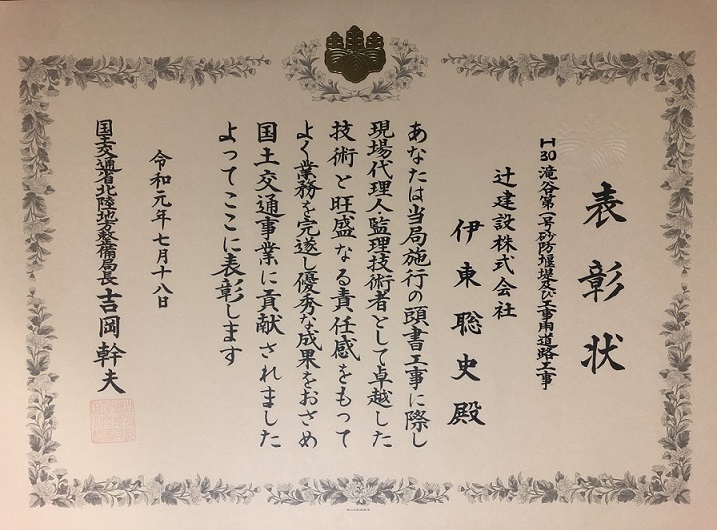 表彰状
H30滝谷第一号砂防堰堤及び工事用道路工事
辻建設株式会社
伊東聡史殿
あなたは当局施行の頭書工事に際し
現場代理人・監理技術者として卓越した
技術と旺盛なる責任感をもって
よく業務を完遂し優秀な成果をおさめ
国土交通事業に貢献されました
よってここに表彰します
令和元年七月十八日
国土交通省北陸地方整備局長吉岡幹夫